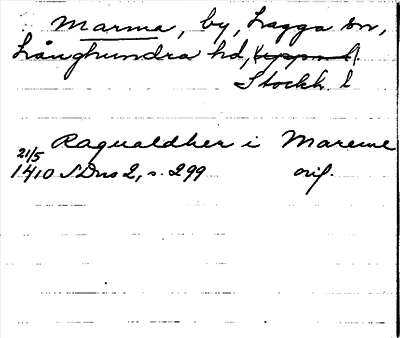 Marma, by, Lagga sn,
Långhundra hd, Uppsala l.
Stockh. l
Ragualdher i Mareme
21/5
1410 SDns 2, s. 299 orig.